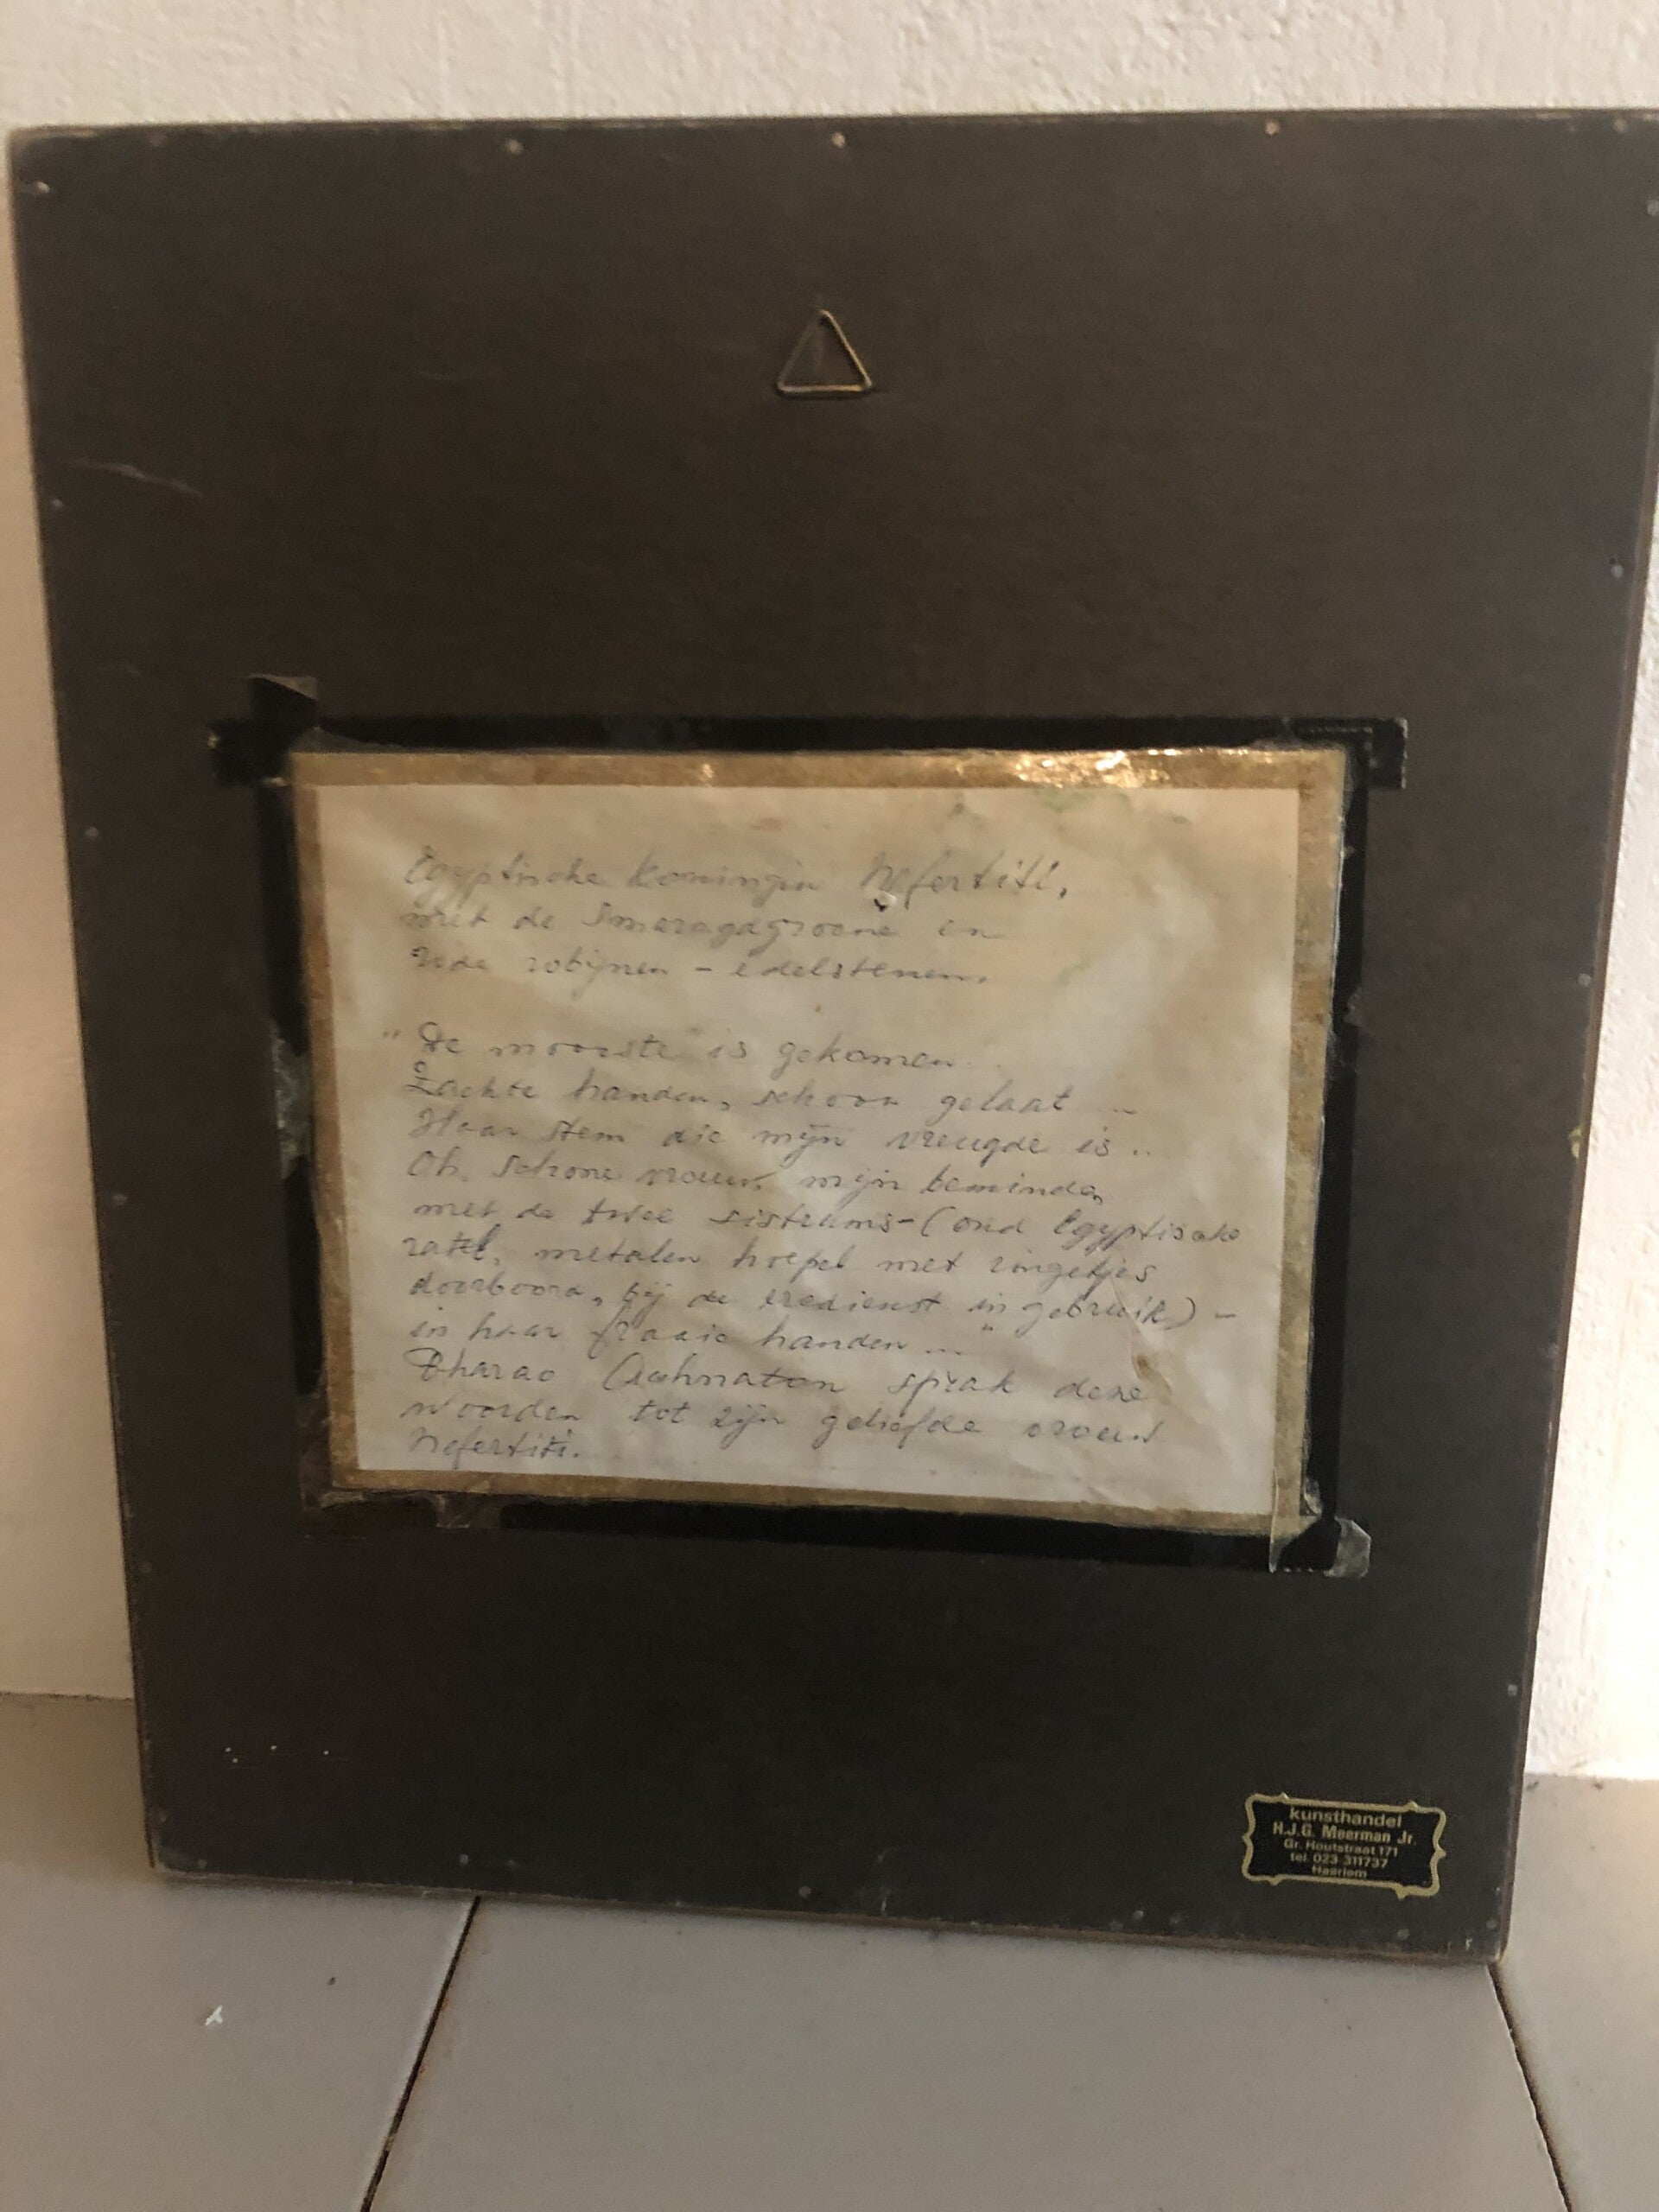 Egyptische Koningin Nefertiti,
met de Smaragdgroene en
rode robijnen - edelstenen.
"De mooiste is gekomen...
Zachte handen, schoon gelaat ..
Haar stem die mijn vreugde is ..
Oh, schone vrouw, mijn beminde,
met de twee sistrums - (oud Egyptische
ratel, metalen hoepel met ringetjes
doorboord, bij de eredienst in gebruik) -
in haar fraaie handen ..."
Pharao Achnaton sprak deze
woorden tot zijn geliefde vrouw
Nefertiti.
kunsthandel
H.J.G. Meerman Jr.
Gr. Houtstraat 171
tel. 023-311737
Haarlem